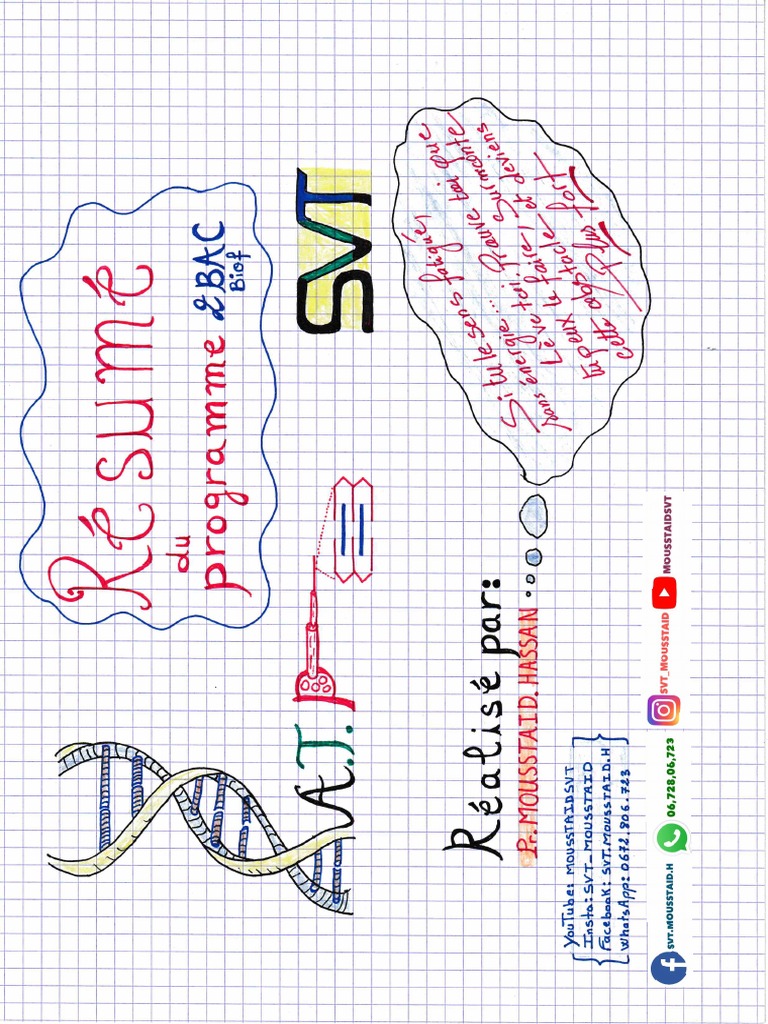 Résumé
du
programme 2BAC
Biof
A.T.P
SVT
Réalisé par:
Pr. MOUSSTAID. HASSAN
Si tu te sens fatigué,
sans énergie... Prouve toi que
Lève toi, Surmonte
tu peux le faire, et deviens
cette obstacle
Plus fort
YouTube: MOUSSTAIDSVT
Insta: SVT_MOUSSTAID
Facebook: SVT.MOUSSTAID.H
WhatsApp: 0672.806.723
SVT.MOUSSTAID.H 06,728,06,723 SVT_MOUSSTAID MOUSSTAIDSVT